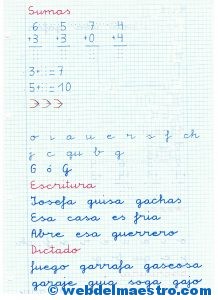 Sumas
6 5 7 4
+3 +3 +0 +4
3+..=7
5+..=10
o i a u e r s f ch
j c qu b g
G ó G
Escritura
Josefa guisa gachas
Esa casa es fria
Abre esa guerrero
Dictado
fuego garrafa gaseosa
garaje guia soga gajo
© webdelmaestro.com